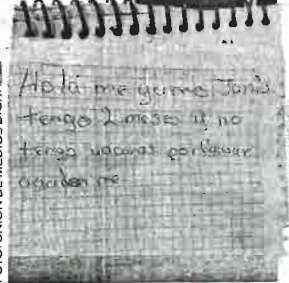 Hola me yamo Janis
tengo 2 meses y no
tengo vacuras porfavar
ayuden me